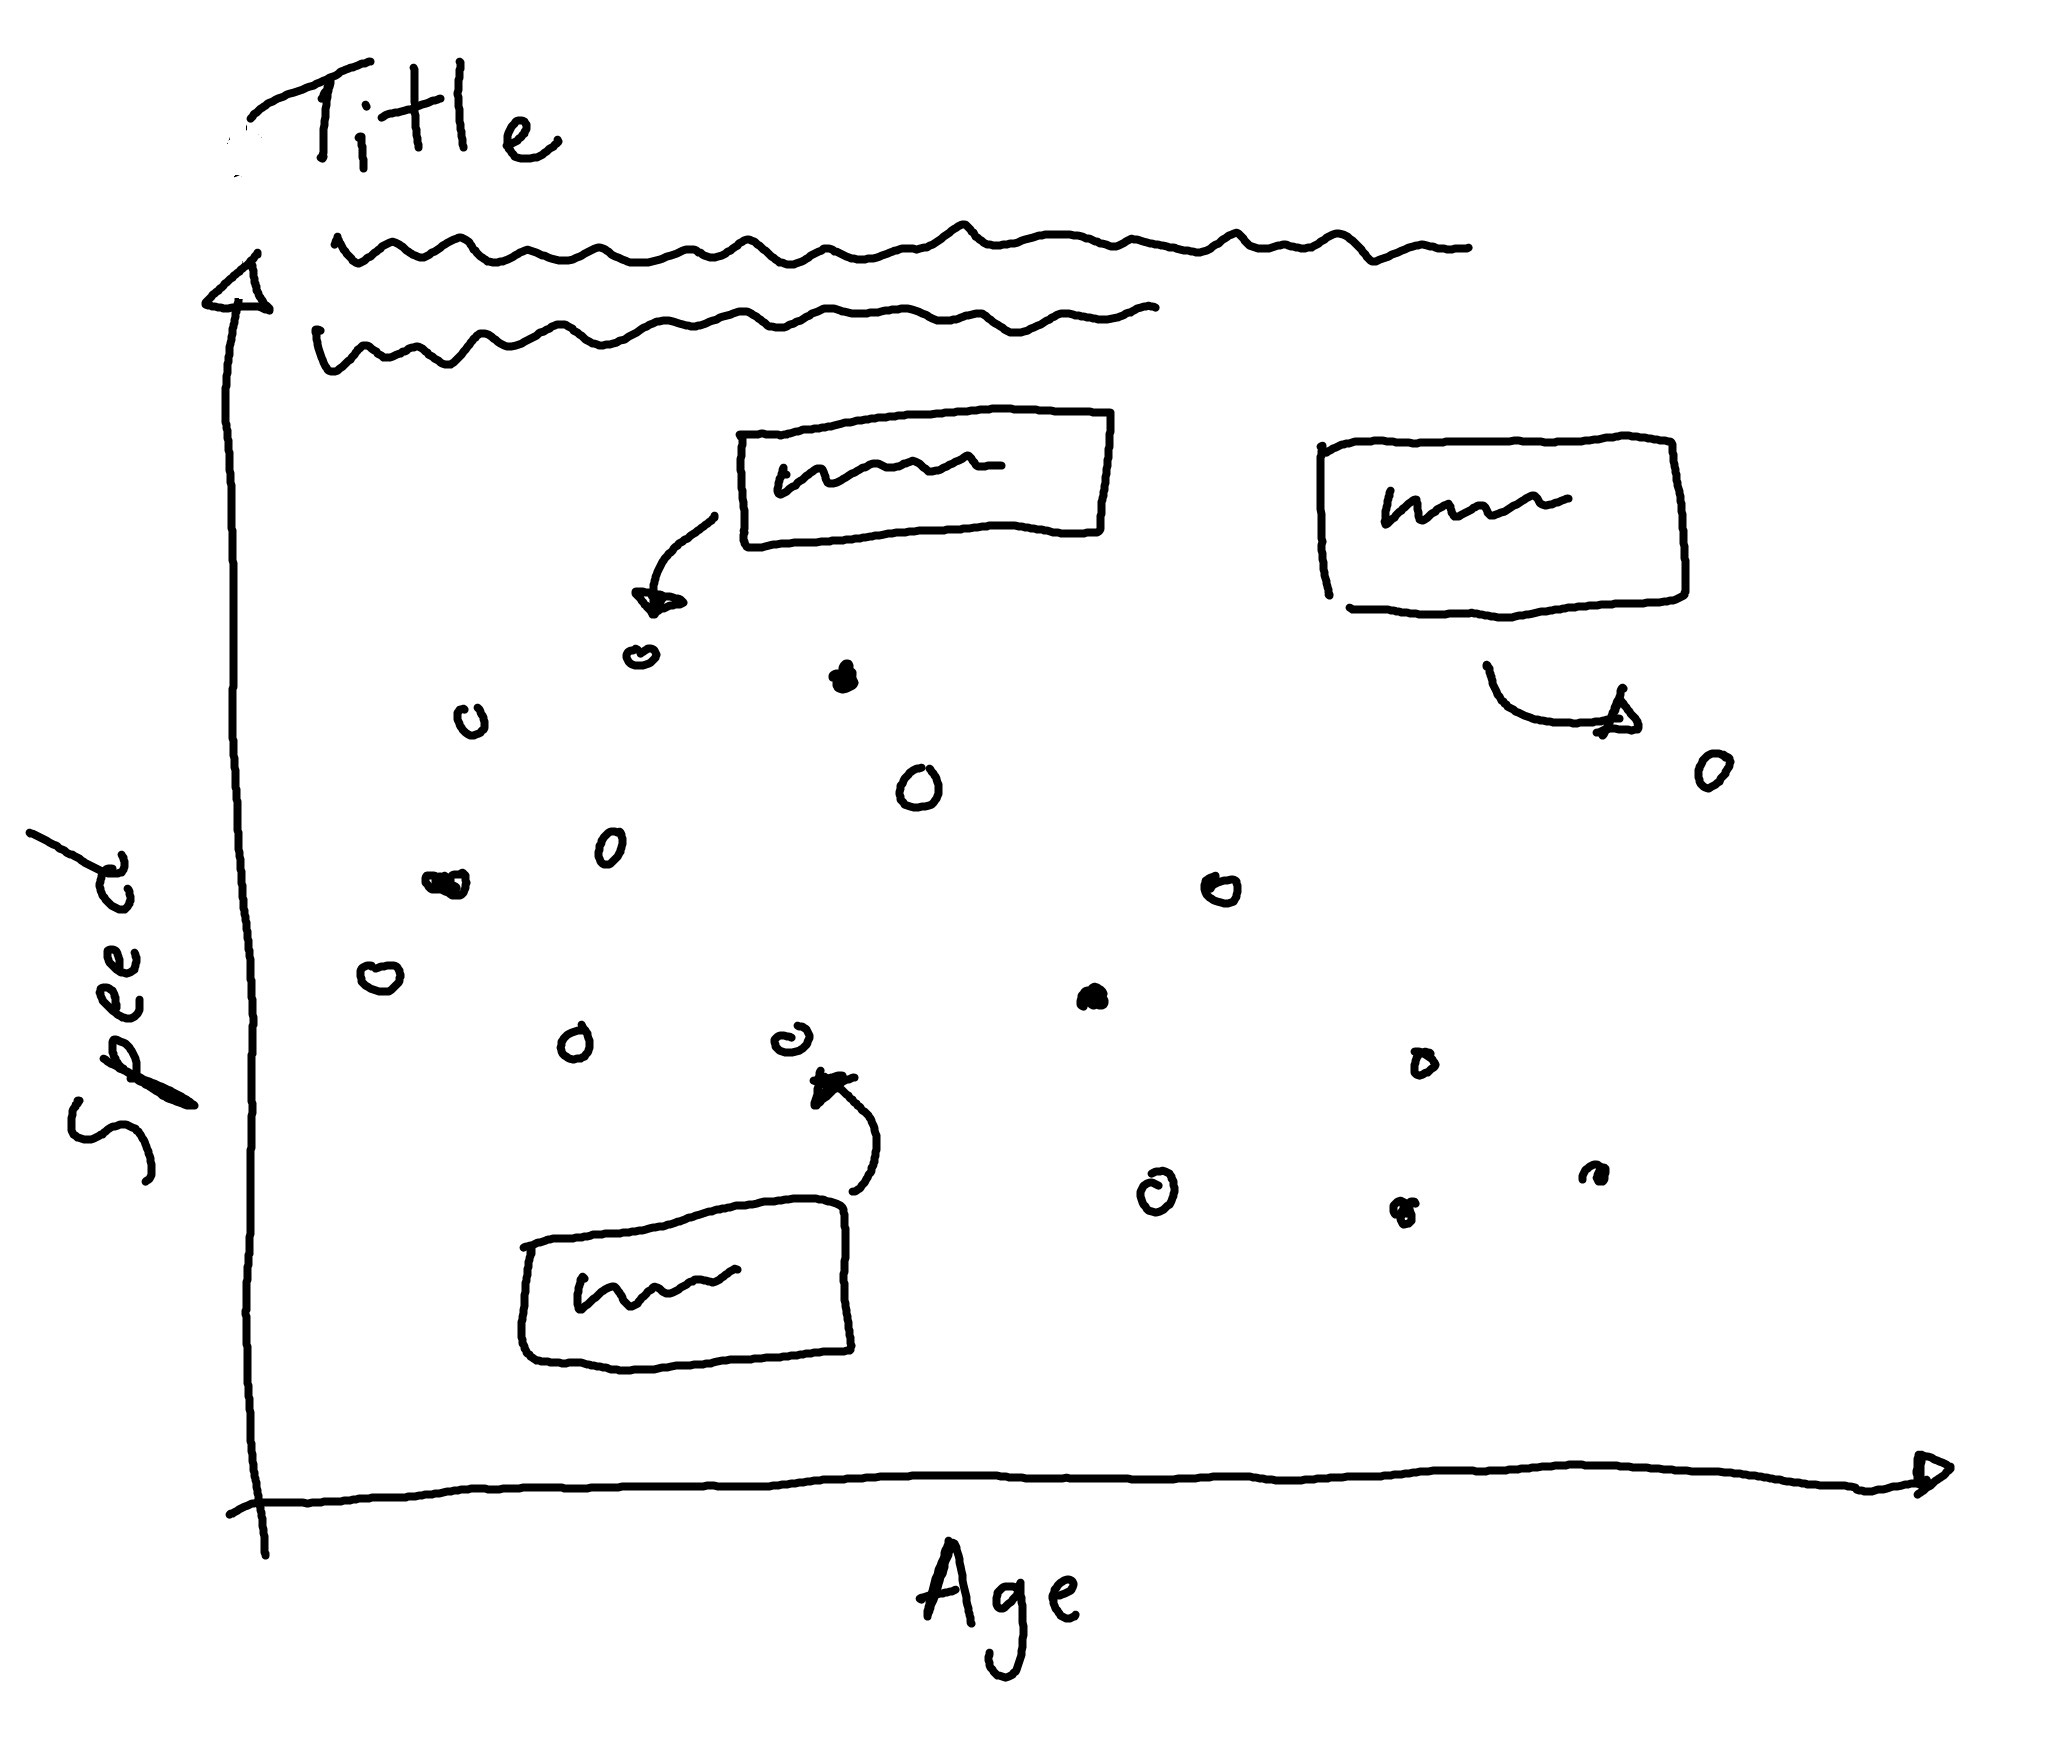 Title
Speed
Age